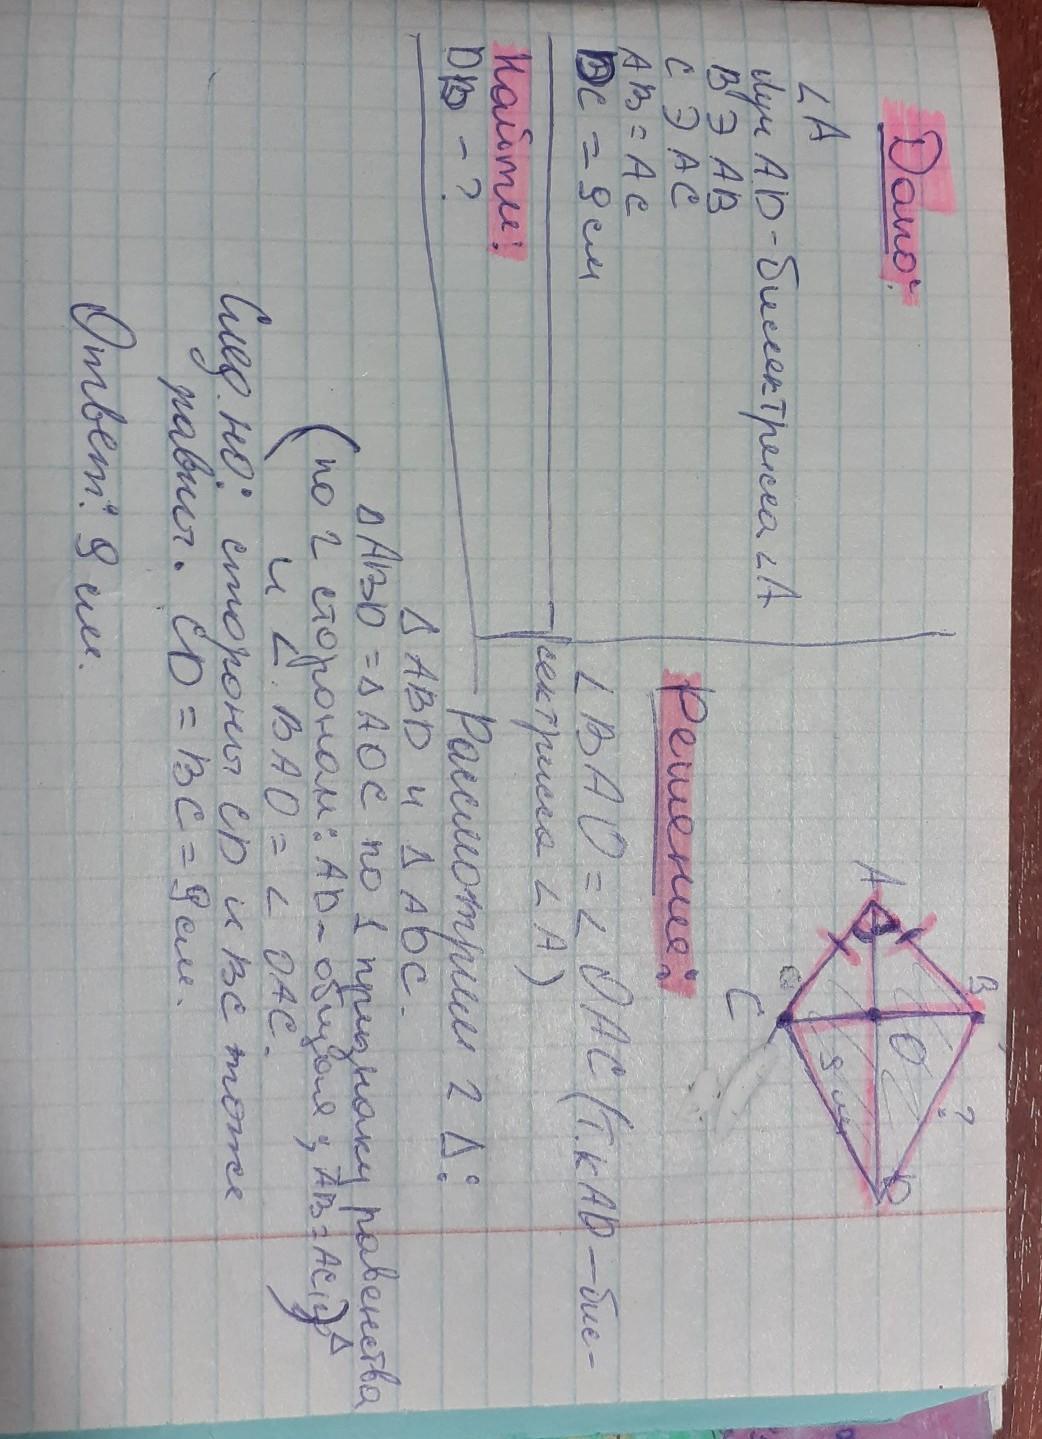 Дано:
∠A
луч AD - биссектрисса ∠A
B ∋ AB
C ∋ AC
AB = AC
DC = 9 см
Найти:
DB - ?
A
B
C
D
O
9 см
?
Решение:
∠ BAO = ∠ OAC (т.к AD - бис-
сектрисса ∠ A)
Рассмотрим 2 Δ:
Δ ABD и Δ ADC.
Δ ABD = Δ ADC по 1 признаку равенства Δ
(по 2 сторонам: AD - общая; AB = AC)
и ∠ BAO = ∠ OAC.
След.но: стороны CD и BC тоже
равны. CD = BC = 9 см.
Ответ: 9 см.